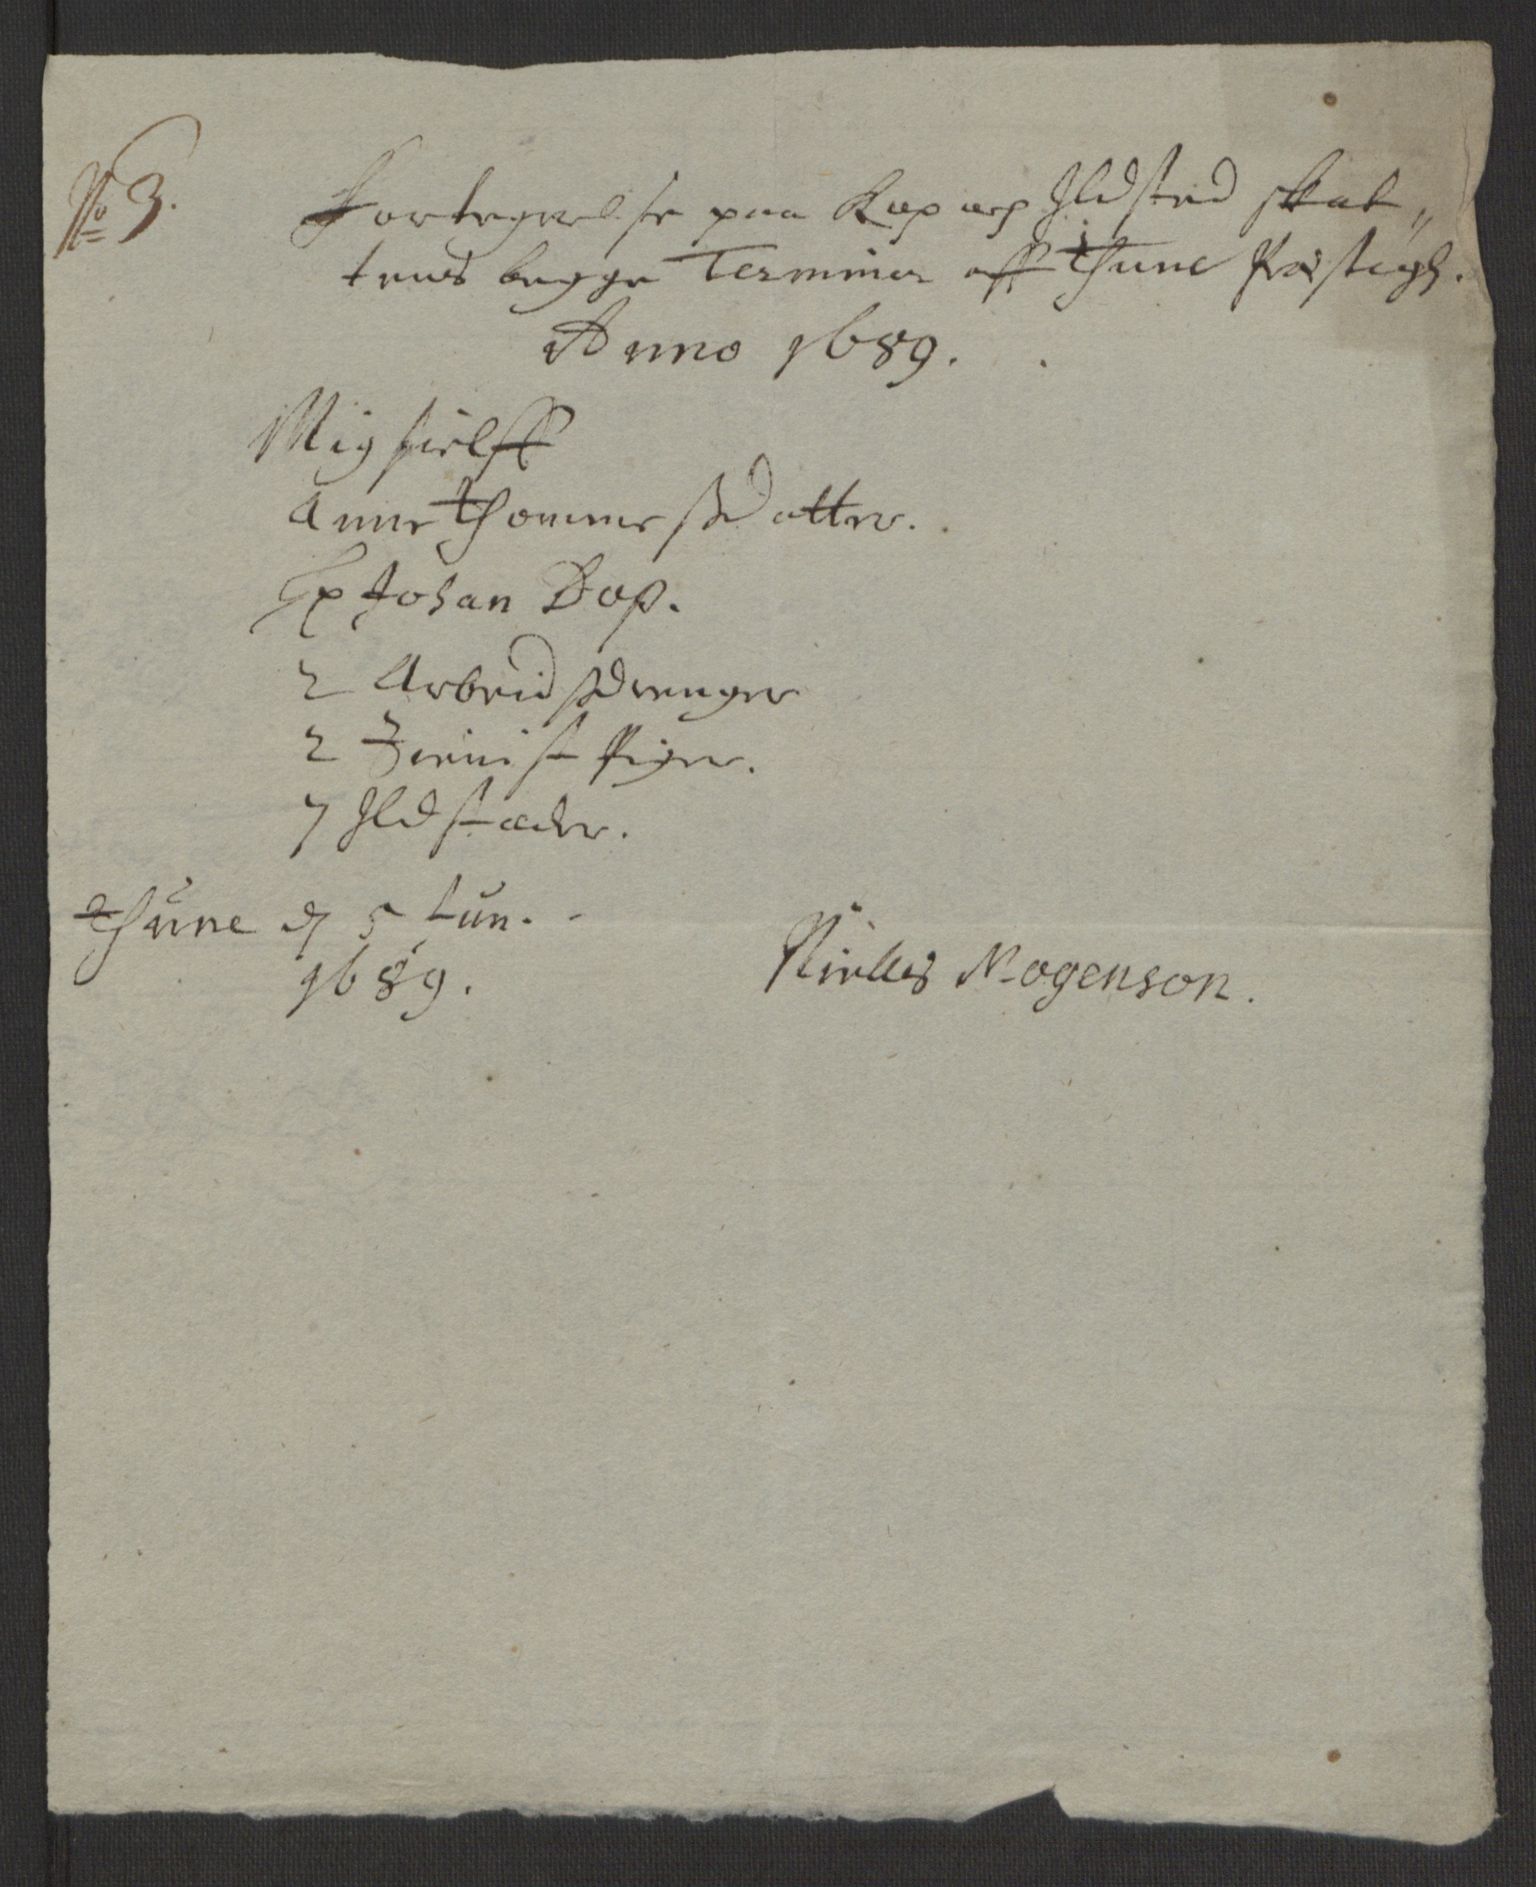 No 3.
Fortegnelse paa Kop og Ildsted skat„
tens begge Terminer aff Thune Præstegh.
Anno 1689.
Mig sielff
Anne Thommesdatter.
Hr Johan Dop.
2 Arbeids drenger
2 Tienist Piger.
7 Ildstæder.
Thune d 5 Jun.
1689.
Nielles Mogenson.